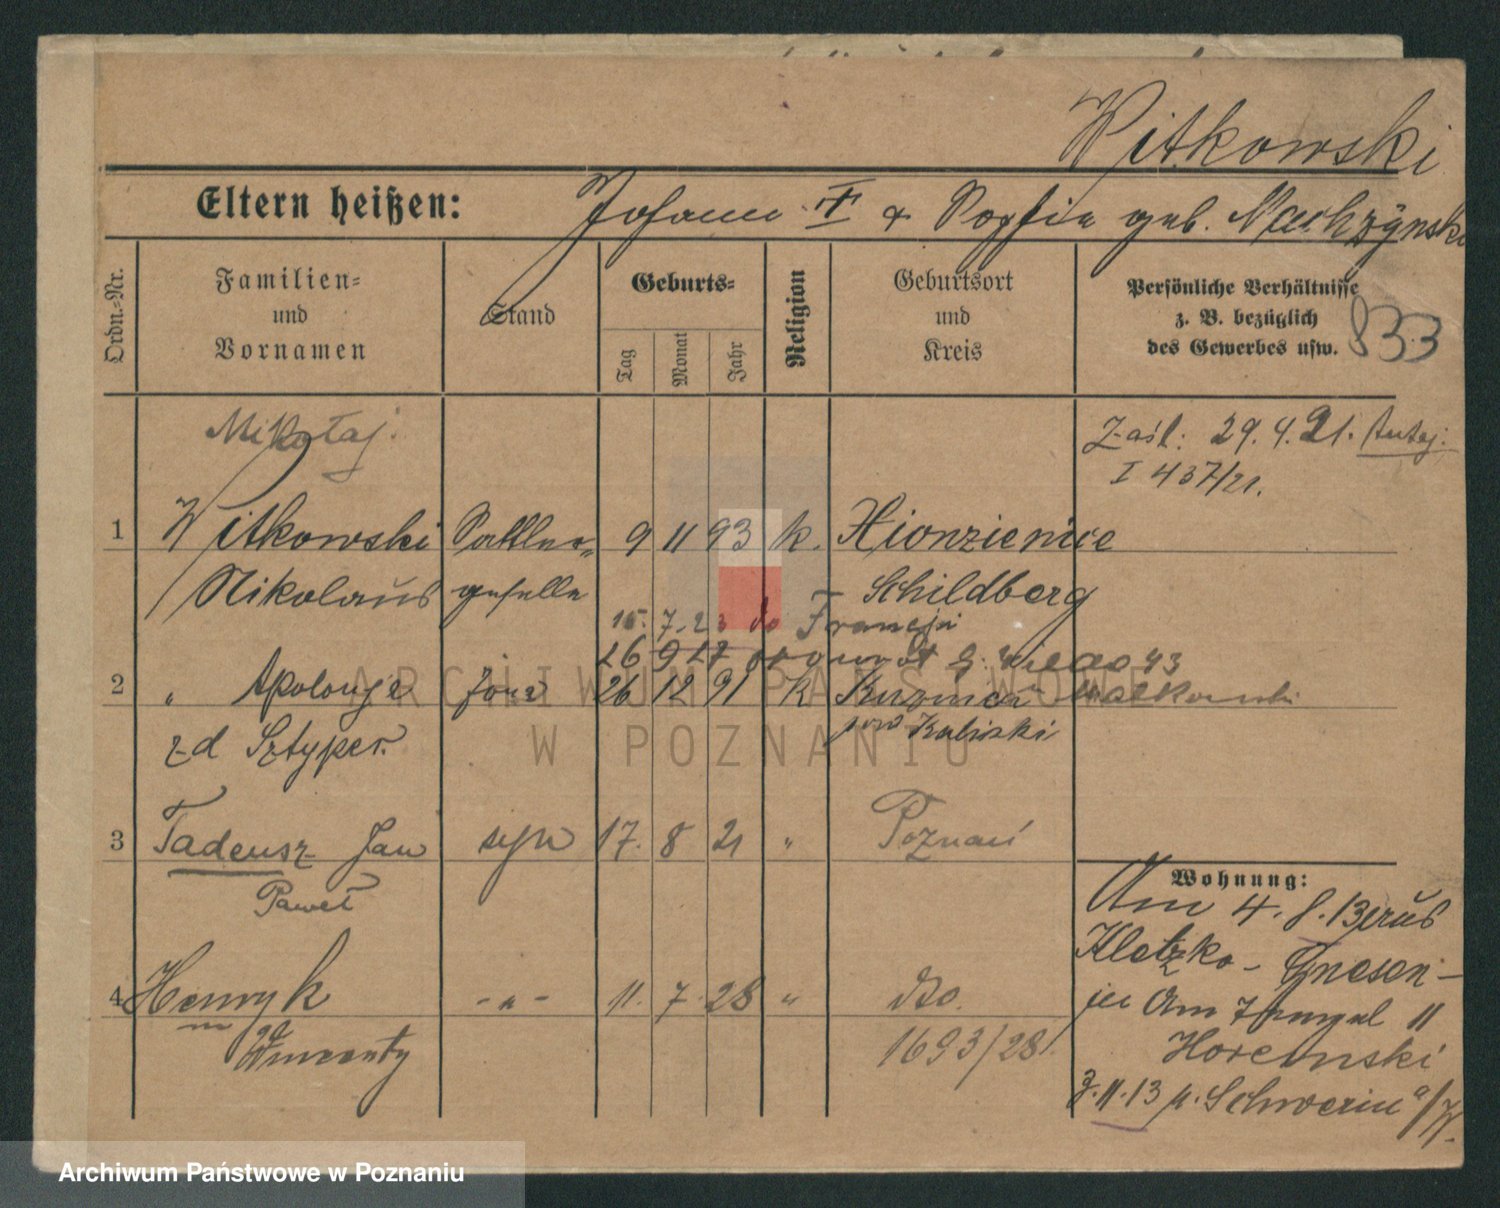 Witkowski
Eltern heißen: Johann + & Sophie geb. Machzynski
Ordn.-Nr.
Familien-
und
Vornamen
Stand
Geburts-
Tag
Monat
Jahr
Religion
Geburtsort
und
Kreis
Persönliche Verhältnisse
z. B. bezüglich
des Gewerbes usw.
833
Mikołaj
Zaśl. 29.4.21.
I 437/21.
1 Witkowski Sattler- 9 11 93 k.
Nikolaus geselle Schildberg
15. 7. 23 do Francji
26 9 27
2 " żona 26 12 91 k Kuźnica
zd Sztyper
3 Tadeusz Jan syn 17. 8 21 " Poznań
Paweł
4 Henryk -"- 11. 7. 28 " dto.
Wincenty 1693/28.
Wohnung:
Am 4. 8. 13 aus
Kletzko - Gnesen -
11
Horemski
3.11.13 n. Schwerin a/W.
ARCHIWUM PAŃSTWOWE
W POZNANIU
Archiwum Państwowe w Poznaniu